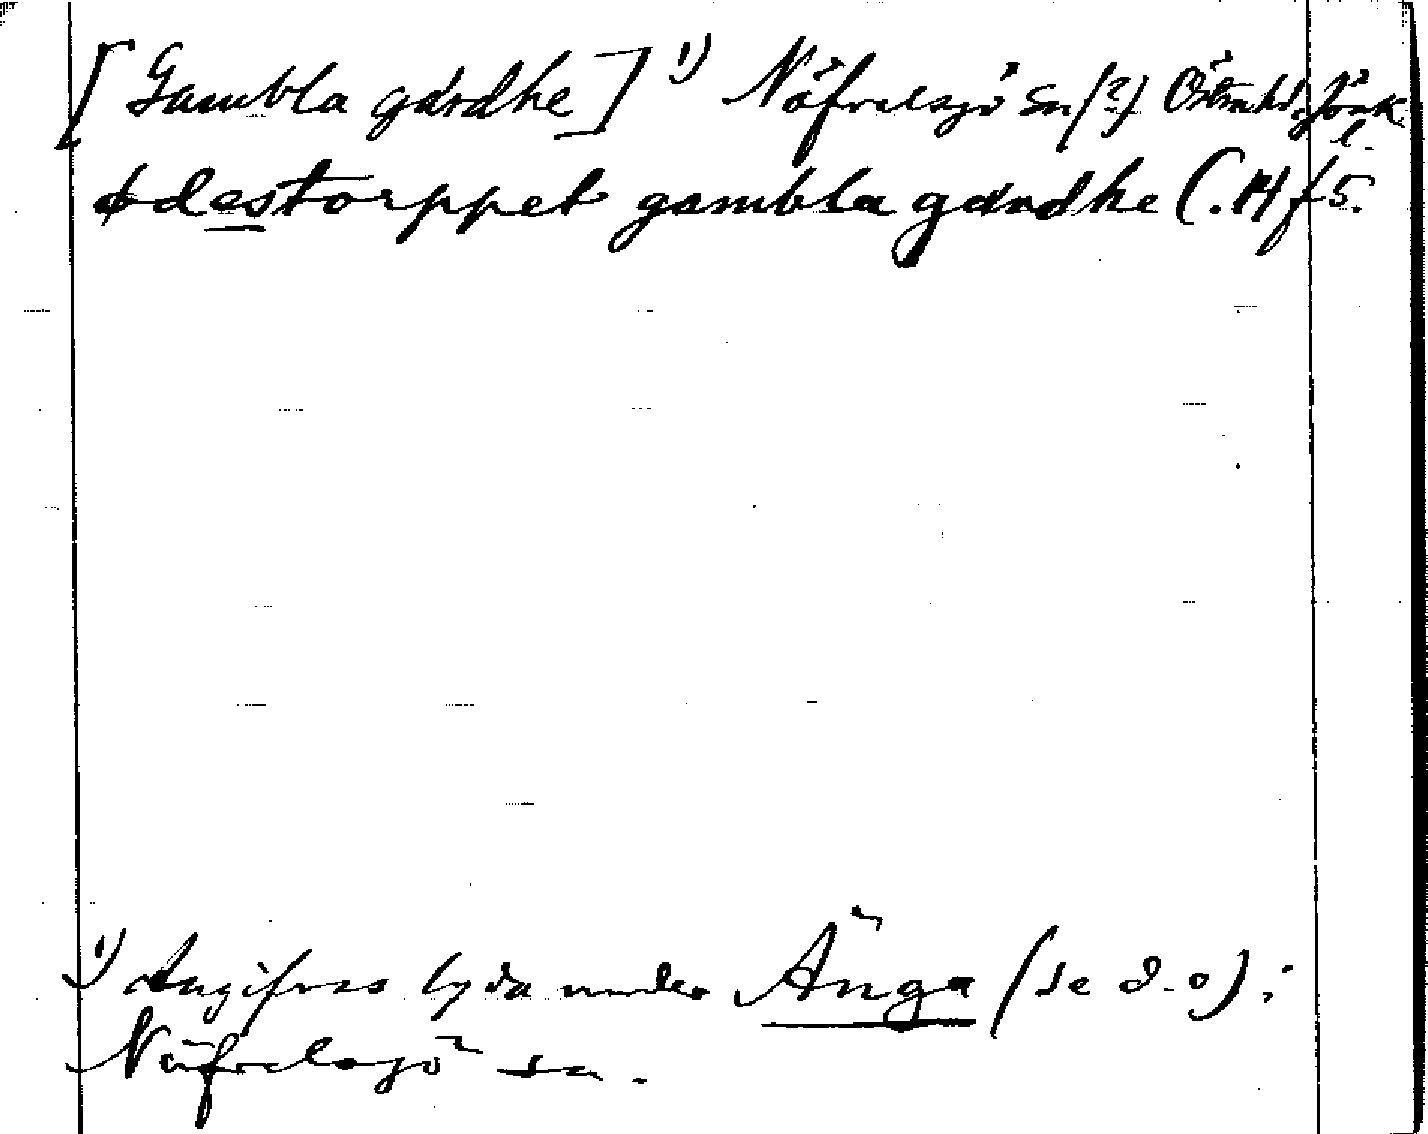 [Gambla gärdhe] 1) Näfvelsjö sn (?) Östra hd. Jönk.
l.
ødestorppet gambla gärdhe (. H f 5.
1) Angifves lyda under Änga (se d. o) i
Näfvelsjö sn.